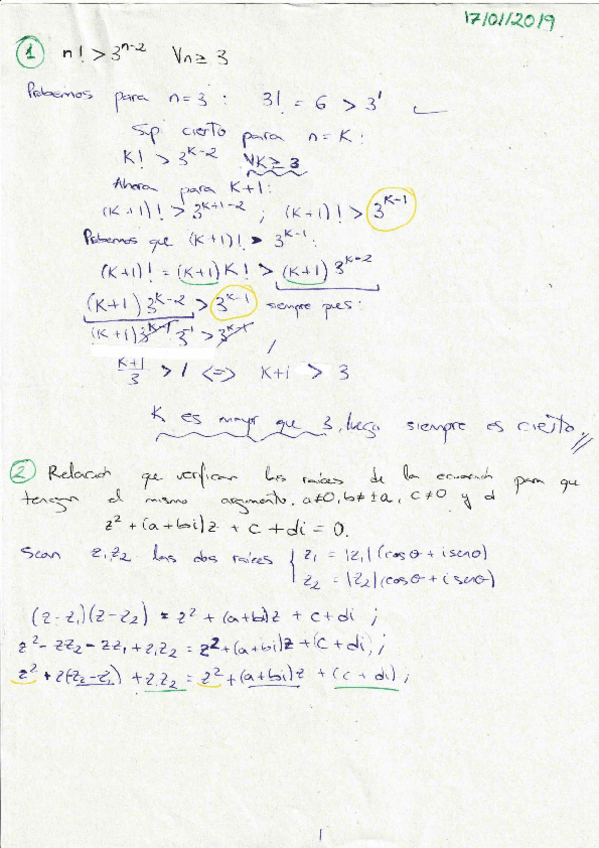 17/01/2019
1 n! > 3^{n-2} ∀n ≥ 3
Probemos para n=3 : 3! = 6 > 3^1
Sup. cierto para n=K:
K! > 3^{K-2} ∀K ≥ 3
Ahora para K+1:
(K+1)! > 3^{K+1-2} ; (K+1)! > 3^{K-1}
Probemos que (K+1)! > 3^{K-1}:
(K+1)! = (K+1) K! > (K+1) 3^{K-2}
(K+1) 3^{K-2} > 3^{K-1} siempre pues:
(K+1) 3^{K-1} 3^{-1} > 3^{K-1}
\frac{K+1}{3} > 1 <=> K+1 > 3
K es mayor que 3, luego siempre es cierto.
2 Relación que verifican las raíces de la ecuación para que
tengan el mismo argumento, a≠0, b≠±a, c≠0 y d
z² + (a+bi)z + c + di = 0.
Sean z₁, z₂ las dos raíces { z₁ = |z₁|(cosθ + i senθ)
z₂ = |z₂|(cosθ + i senθ)
(z-z₁)(z-z₂) = z² + (a+bi)z + c + di ;
z² - zz₂ - zz₁ + z₁z₂ = z² + (a+bi)z + (c+di) ;
z² + z(-z₂-z₁) + z₁z₂ = z² + (a+bi)z + (c+di) ;
1